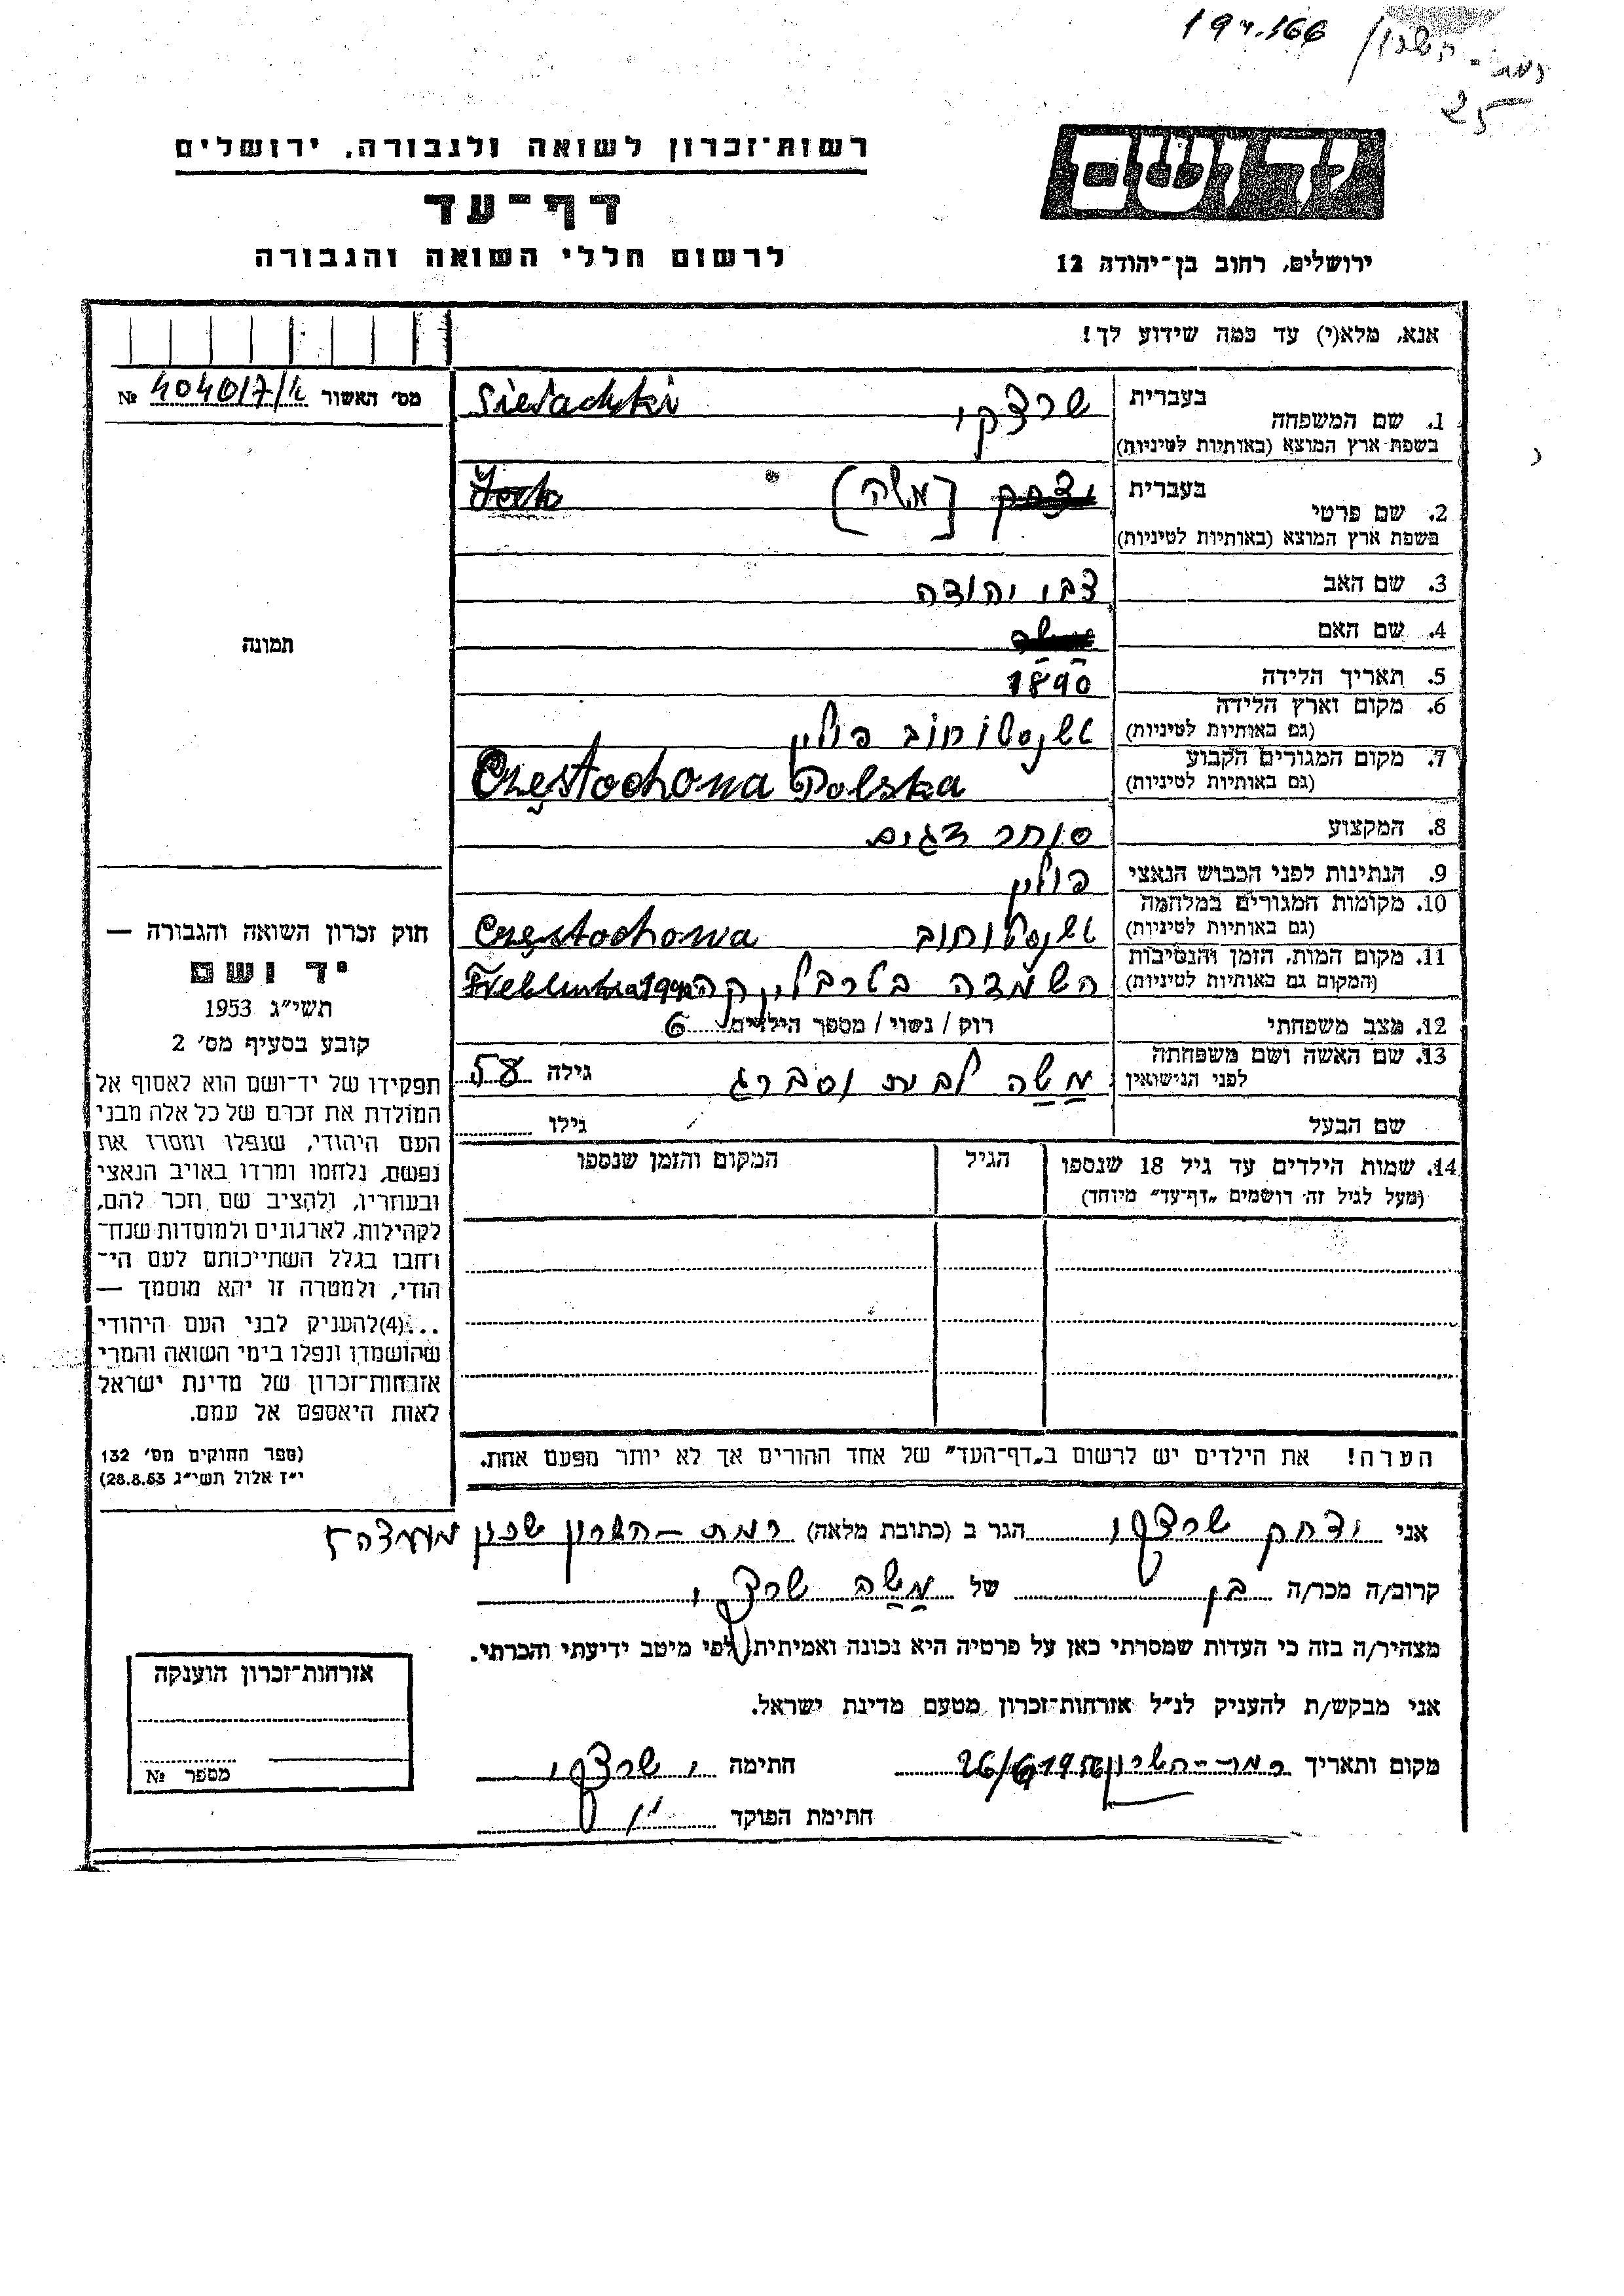 רמת-השרון
25
רשות־זכרון לשואה ולגבורה, ירושלים
דף־עד
לרשום חללי השואה והגבורה
יד ושם
ירושלים, רחוב בן־יהודה 12
אנא, מלא(י) עד כמה שידוע לך!
מס׳ האשור № 404017/
1. שם המשפחה בעברית שרצקי
בשפת ארץ המוצא (באותיות לטיניות)
2. שם פרטי בעברית יצחק [משה]
בשפת ארץ המוצא (באותיות לטיניות)
3. שם האב צבי יהודה
4. שם האם
5. תאריך הלידה 1890
6. מקום וארץ הלידה
(גם באותיות לטיניות) פולין
7. מקום המגורים הקבוע
(גם באותיות לטיניות) Częstochona Polska
8. המקצוע סוחר דגים
9. הנתינות לפני הכבוש הנאצי פולין
10. מקומות המגורים במלחמה
(גם באותיות לטיניות) Częstochowa
11. מקום המות, הזמן והנסיבות
(המקום גם באותיות לטיניות) השמדה בטרבלינקה
12. מצב משפחתי רוק / נשוי / מספר הילדים 6
13. שם האשה ושם משפחתה
לפני הנישואין לבית גילה
שם הבעל גילו
14. שמות הילדים עד גיל 18 שנספו הגיל המקום והזמן שנספו
(מעל לגיל זה רושמים „דף־עד״ מיוחד)
הערה! את הילדים יש לרשום ב„דף־העד״ של אחד ההורים אך לא יותר מפעם אחת.
תמונה
חוק זכרון השואה והגבורה —
יד ושם
תשי״ג 1953
קובע בסעיף מס׳ 2
תפקידו של יד־ושם הוא לאסוף אל
המולדת את זכרם של כל אלה מבני
העם היהודי, שנפלו ומסרו את
נפשם, נלחמו ומרדו באויב הנאצי
ובעוזריו, ולהציב שם וזכר להם,
לקהילות, לארגונים ולמוסדות שנח־
רחבו בגלל השתייכותם לעם הי־
הודי, ולמטרה זו יהא מוסמך —
...(4)להעניק לבני העם היהודי
שהושמדו ונפלו בימי השואה והמרי
אזרחות־זכרון של מדינת ישראל
לאות היאספם אל עמם.
(ספר החוקים מס׳ 132
י״ז אלול תשי״ג 28.8.53)
אני יצחק שרצקי הגר ב (כתובת מלאה) רמת-השרון שכון
קרוב/ה מכר/ה בן של משה שרצקי
מצהיר/ה בזה כי העדות שמסרתי כאן על פרטיה היא נכונה ואמיתית, לפי מיטב ידיעתי והכרתי.
אני מבקש/ת להעניק לנ״ל אזרחות־זכרון מטעם מדינת ישראל.
מקום ותאריך רמת-השרון חתימה י שרצקי
חתימת הפוקד
אזרחות־זכרון הוענקה
מספר №